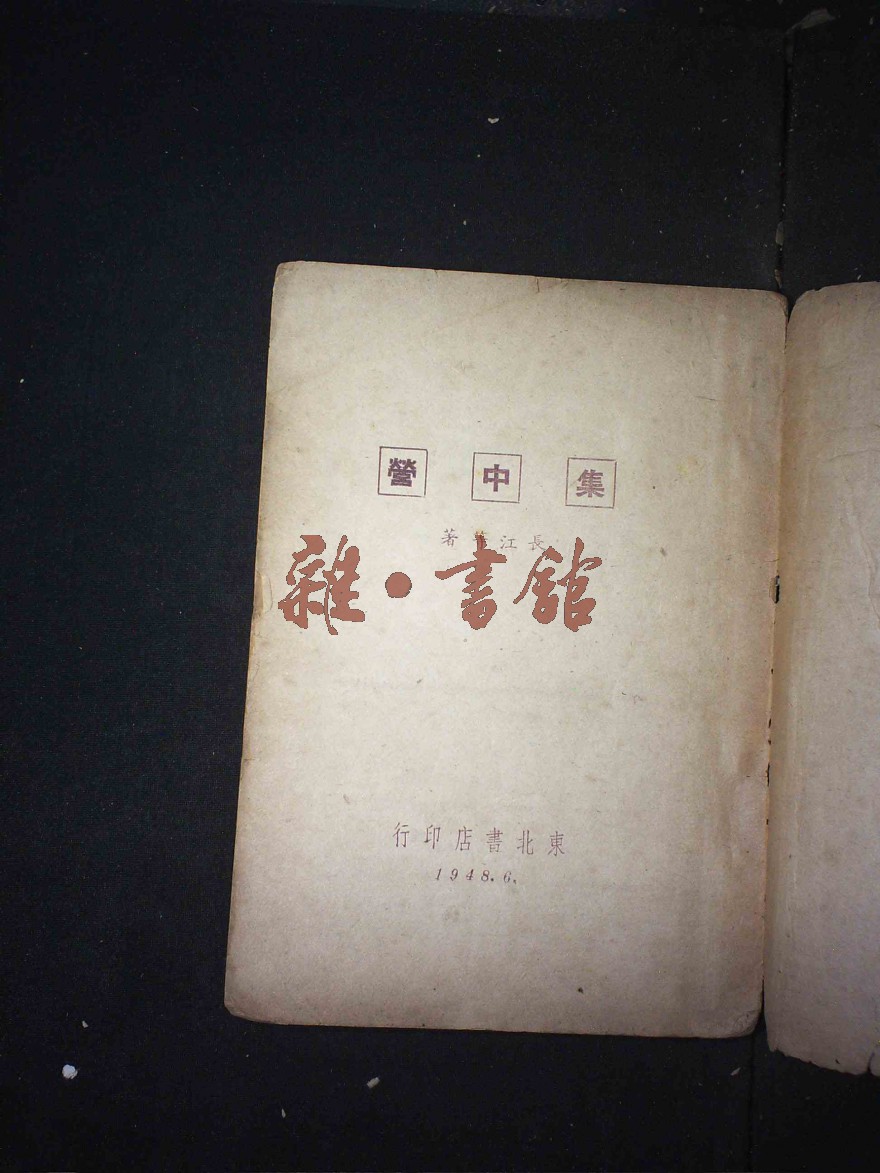 集中營
長江等著
雜·書館
東北書店印行
1948.6.